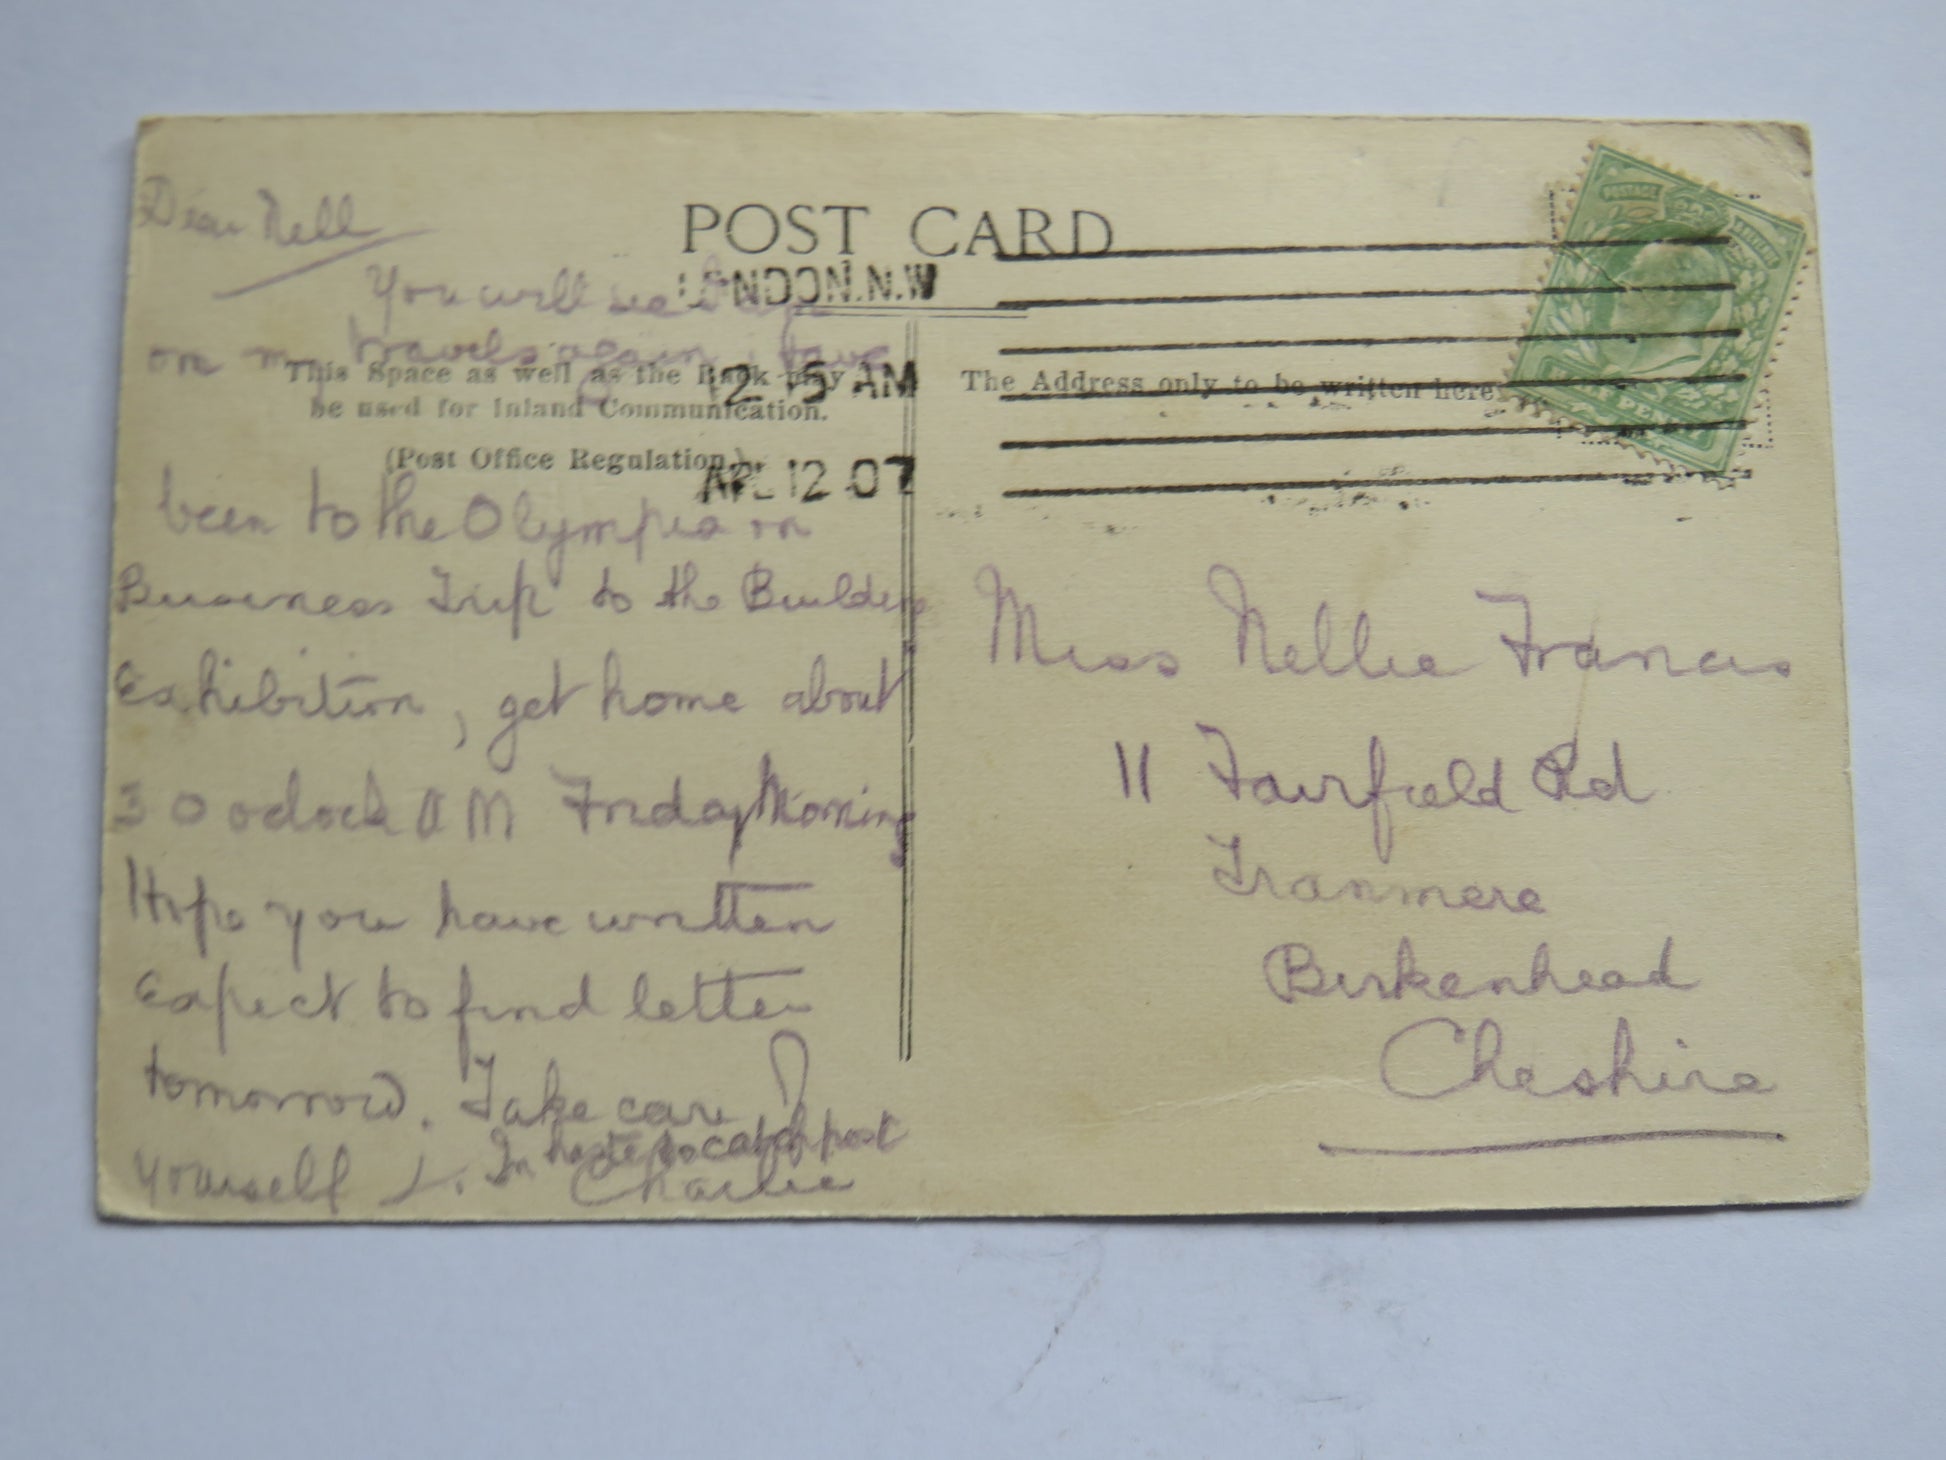 POST CARD
LONDON.N.W
12 15 AM
APL 12 07
This Space as well as the Back may
be used for Inland Communication.
(Post Office Regulation.)
The Address only to be written here
POSTAGE
REVENUE
HALF PENNY
Dear Nell
You will see I am
on my travels again, I have
been to the Olympia on
Business Trip to the Builders
Exhibition, get home about
3 O oclock A M Friday Morning
Hope you have written
Expect to find letter
tomorrow. Take care of
yourself
In haste to catch post
Charlie
Miss Nellie Francis
11 Fairfield Rd
Tranmere
Birkenhead
Cheshire